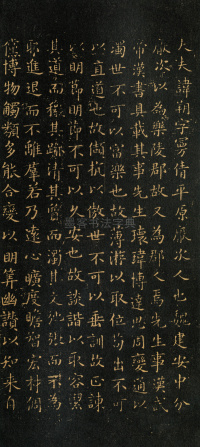 大夫諱朔字曼倩平原厭次人也魏建安中分
厭次以為樂陵郡故又為郡人焉先生事漢武
帝漢書具載其事先生瓌瑋博達思周變通以
濁世不可以富樂也故薄游以取位苟出不可
以直道也故抗以傲世不可以垂訓故正諫
以明節明節不可以久安也故談諧以取容潔
其道而穢其跡清其質而濁其文弛張而不為
耶進退而不離羣若乃遠心曠度贍智宏材倜
儻博物觸類多能合變以明筭幽讚以知來自